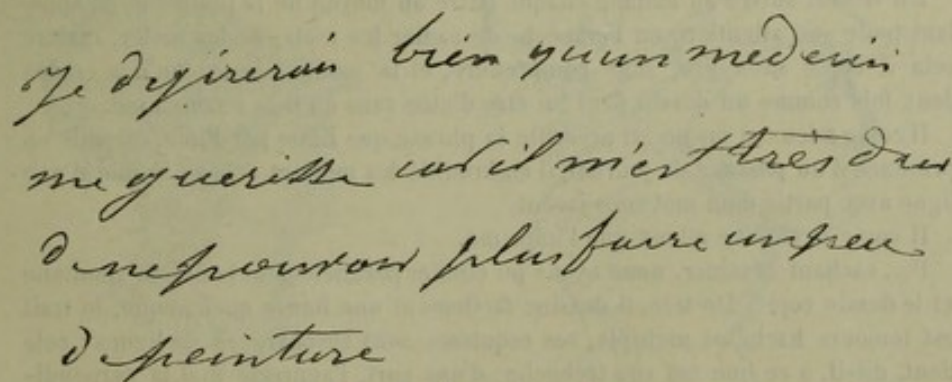 Je desirerais bien qu'un medecin
me guerisse car il m'est très dur
de ne pouvoir plus faire un peu
de peinture